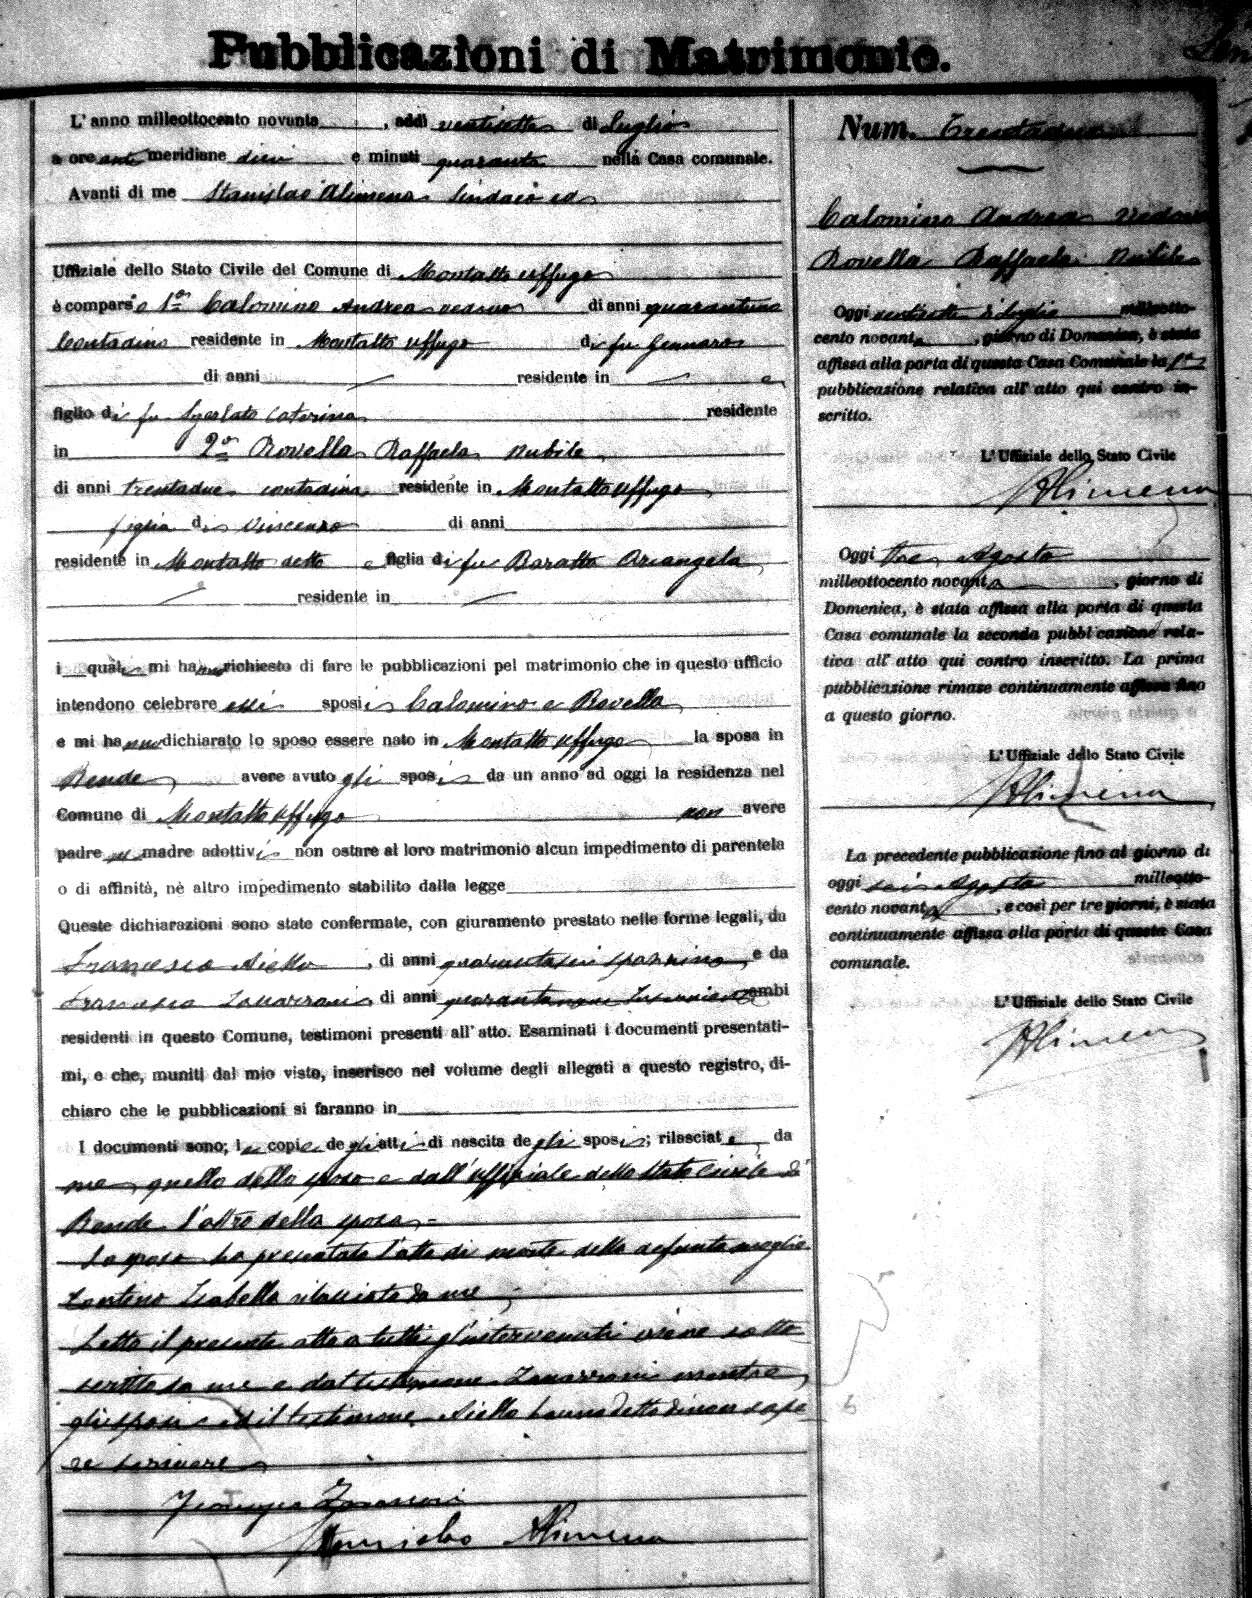 Pubblicazioni di Matrimonio.
L'anno milleottocento novanta, addì ventisette di Luglio
a ore anti meridiane dieci e minuti quaranta nella Casa comunale.
Avanti di me Stanislao Alimena Sindaco ed
Uffiziale dello Stato Civile del Comune di Montalto Uffugo
è compars o 1° Calomino Andrea vedovo di anni quarantuno
Contadino residente in Montalto Uffugo di fu Gennaro
di anni residente in e
figlio di fu Caterina residente
in 2° Rovella Raffaela nubile
di anni trentadue contadina residente in Montalto Uffugo
figlia di Vincenzo di anni
residente in Montalto detto e figlia di fu Baratta Arcangela
residente in
i quali mi hanno richiesto di fare le pubblicazioni pel matrimonio che in questo ufficio
intendono celebrare essi sposi Calomino e Rovella
e mi hanno dichiarato lo sposo essere nato in Montalto Uffugo la sposa in
Rende avere avuto gli sposi da un anno ad oggi la residenza nel
Comune di Montalto Uffugo non avere
padre nè madre adottivi non ostare al loro matrimonio alcun impedimento di parentela
o di affinità, nè altro impedimento stabilito dalla legge
Queste dichiarazioni sono state confermate, con giuramento prestato nelle forme legali, da
Francesco Aiello, di anni quarantasei spazzino, e da
Francesco Zanarroni di anni quarantanove ambi
residenti in questo Comune, testimoni presenti all'atto. Esaminati i documenti presentati-
mi, e che, muniti dal mio visto, inserisco nel volume degli allegati a questo registro, di-
chiaro che le pubblicazioni si faranno in
I documenti sono; le copie degli atti di nascita degli sposi; rilasciate da
me quello dello sposo e dall'uffiziale dello stato Civile di
Rende l'altro della sposa=
Lo sposo ha presentato l'atto di morte della defunta moglie
Isabella rilasciato da me
Letto il presente atto a tutti gl'intervenuti viene sotto
scritto da me e dal testimone Zanarroni mentre
gli sposi ed il testimone Aiello hanno detto di non sape
re scrivere
Stanislao Alimena
Num. Trentadue
Calomino Andrea vedovo
Rovella Raffaela nubile
Oggi ventisette luglio milleotto-
cento novanta, giorno di Domenica, è stata
affissa alla porta di questa Casa Comunale la 1a
pubblicazione relativa all'atto qui contro in-
scritto.
L'Uffiziale dello Stato Civile
Alimena
Oggi tre Agosto
milleottocento novanta giorno di
Domenica, è stata affissa alla porta di questa
Casa comunale la seconda pubblicazione rela-
tiva all'atto qui contro inscritto. La prima
pubblicazione rimase continuamente affissa fino
a questo giorno.
L'Uffiziale dello Stato Civile
Alimena
La precedente pubblicazione fino al giorno di
oggi sei Agosto milleotto-
cento novanta, e così per tre giorni, è stata
continuamente affissa alla porta di questa Casa
comunale.
L'Uffiziale dello Stato Civile
Alimena